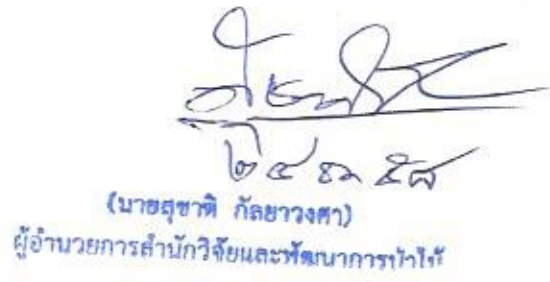 ๒๔ ธค ๕๘
(นายสุชาติ กัลยาวงศา)
ผู้อำนวยการสำนักวิจัยและพัฒนาการป่าไม้